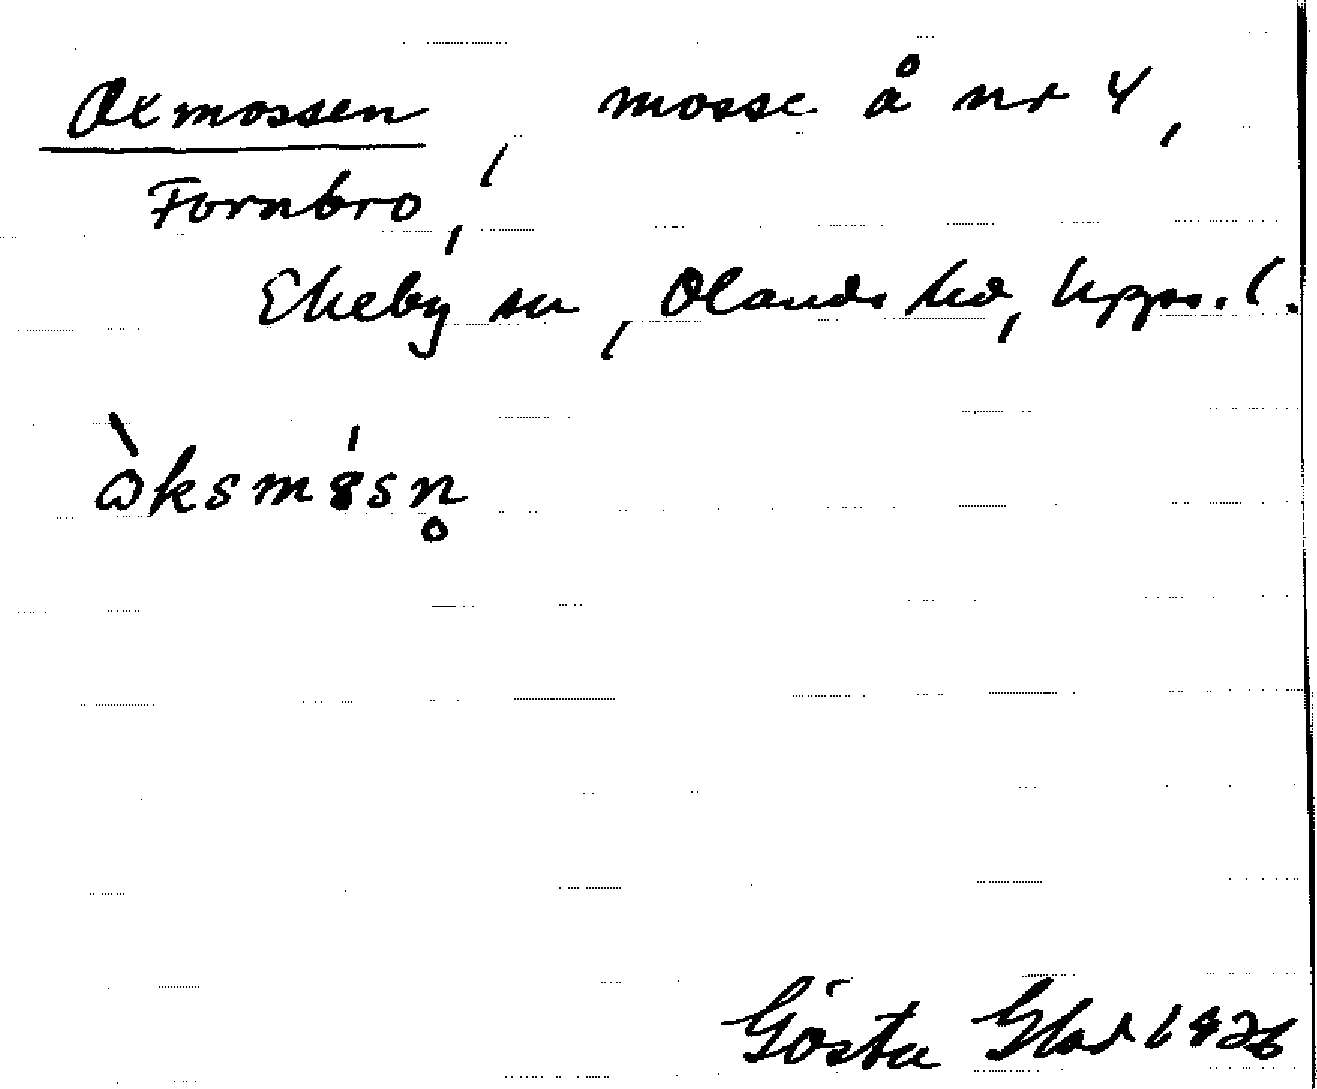 Oxmossen, mosse å nr 4,
Fornbro,
Ekeby sn, Olands hd, Upps. l.
ὼksmɵ́sn̥
Gösta Glad 1926